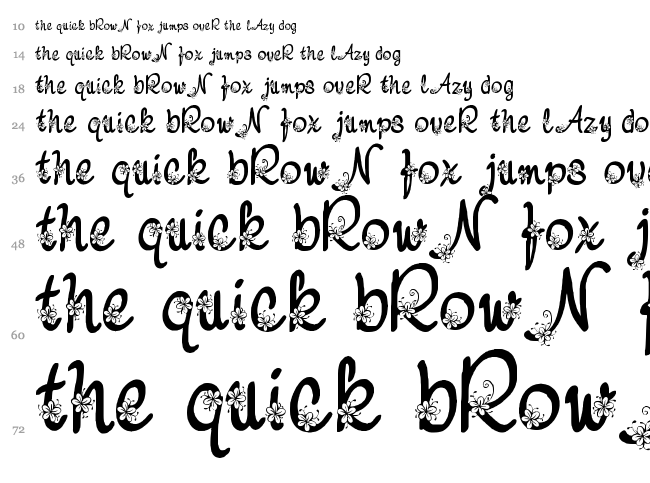 10 the quick bRowN fox jumps oveR the lAzy dog
14 the quick bRowN fox jumps oveR the lAzy dog
18 the quick bRowN fox jumps oveR the lAzy dog
24 the quick bRowN fox jumps oveR the lAzy do
36 the quick bRowN fox jumps ov
48 the quick bRowN fox j
60 the quick bRowN
72 the quick bRow